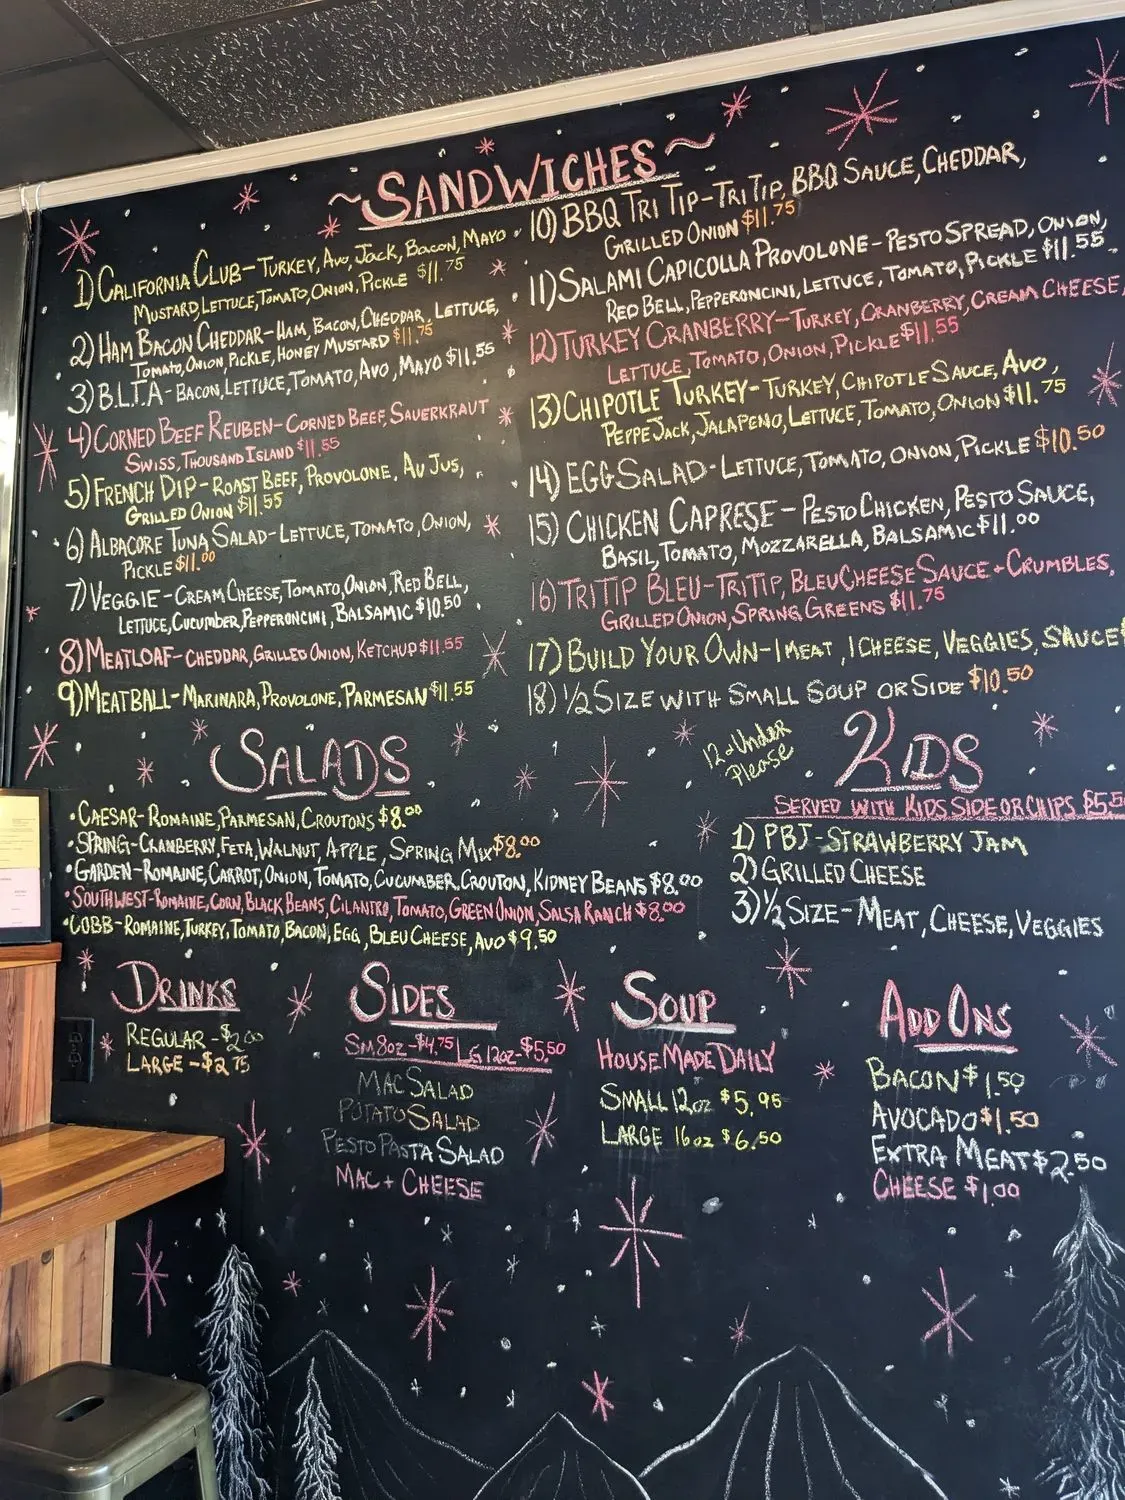 ~SANDWICHES~
1) CALIFORNIA CLUB-TURKEY, AVO, JACK, BACON, MAYO
MUSTARD, LETTUCE, TOMATO, ONION, PICKLE $11.75
2) HAM BACON CHEDDAR-HAM, BACON, CHEDDAR, LETTUCE,
TOMATO, ONION, PICKLE, HONEY MUSTARD $11.75
3) B.L.T.A-BACON, LETTUCE, TOMATO, AVO, MAYO $11.55
4) CORNED BEEF REUBEN-CORNED BEEF, SAUERKRAUT
SWISS, THOUSAND ISLAND $11.55
5) FRENCH DIP-ROAST BEEF, PROVOLONE, AU JUS,
GRILLED ONION $11.55
6) ALBACORE TUNA SALAD-LETTUCE, TOMATO, ONION,
PICKLE $11.00
7) VEGGIE-CREAM CHEESE, TOMATO, ONION, RED BELL,
LETTUCE, CUCUMBER, PEPPERONCINI, BALSAMIC $10.50
8) MEATLOAF-CHEDDAR, GRILLED ONION, KETCHUP $11.55
9) MEATBALL-MARINARA, PROVOLONE, PARMESAN $11.55
10) BBQ TRI TIP-TRI TIP, BBQ SAUCE, CHEDDAR,
GRILLED ONION $11.75
11) SALAMI CAPICOLLA PROVOLONE-PESTO SPREAD, ONION,
RED BELL, PEPPERONCINI, LETTUCE, TOMATO, PICKLE $11.55
12) TURKEY CRANBERRY-TURKEY, CRANBERRY, CREAM CHEESE,
LETTUCE, TOMATO, ONION, PICKLE $11.55
13) CHIPOTLE TURKEY-TURKEY, CHIPOTLE SAUCE, AVO,
PEPPEJACK, JALAPENO, LETTUCE, TOMATO, ONION $11.75
14) EGG SALAD-LETTUCE, TOMATO, ONION, PICKLE $10.50
15) CHICKEN CAPRESE-PESTO CHICKEN, PESTO SAUCE,
BASIL, TOMATO, MOZZARELLA, BALSAMIC $11.00
16) TRITIP BLEU-TRITIP, BLEU CHEESE SAUCE + CRUMBLES,
GRILLED ONION, SPRING GREENS $11.75
17) BUILD YOUR OWN-1 MEAT, 1 CHEESE, VEGGIES, SAUCE $
18) 1/2 SIZE WITH SMALL SOUP OR SIDE $10.50
SALADS
•CAESAR-ROMAINE, PARMESAN, CROUTONS $8.00
•SPRING-CRANBERRY, FETA, WALNUT, APPLE, SPRING MIX $8.00
•GARDEN-ROMAINE, CARROT, ONION, TOMATO, CUCUMBER, CROUTON, KIDNEY BEANS $8.00
•SOUTHWEST-ROMAINE, CORN, BLACK BEANS, CILANTRO, TOMATO, GREEN ONION, SALSA RANCH $8.00
•COBB-ROMAINE, TURKEY, TOMATO, BACON, EGG, BLEU CHEESE, AVO $9.50
12-Under
Please
KIDS
SERVED WITH KIDS SIDE OR CHIPS $5.5
1) PBJ-STRAWBERRY JAM
2) GRILLED CHEESE
3) 1/2 SIZE-MEAT, CHEESE, VEGGIES
DRINKS
REGULAR-$2.00
LARGE-$2.75
SIDES
SM 8oz-$4.75 LG 12oz-$5.50
MAC SALAD
POTATO SALAD
PESTO PASTA SALAD
MAC + CHEESE
SOUP
HOUSE MADE DAILY
SMALL 12oz $5.95
LARGE 16oz $6.50
ADD ONS
BACON $1.50
AVOCADO $1.50
EXTRA MEAT $2.50
CHEESE $1.00